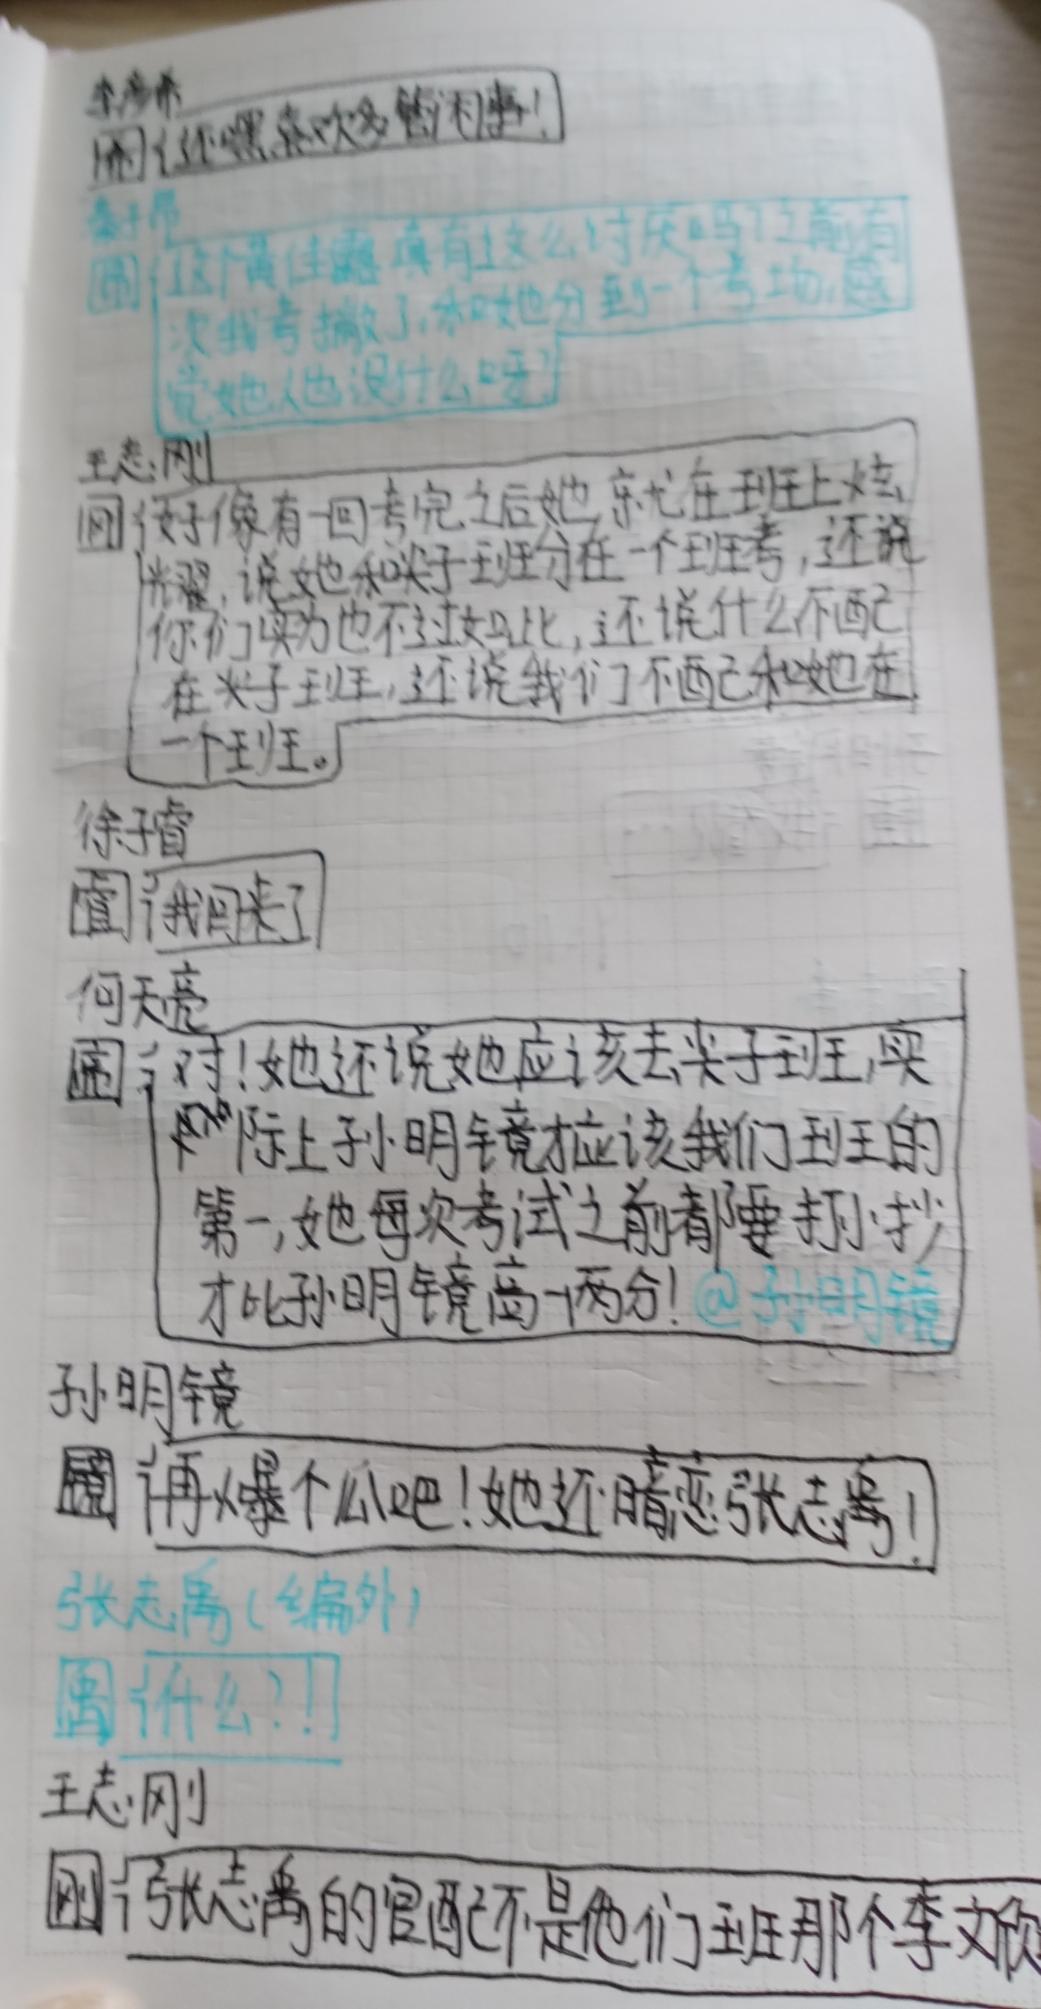 李彦希
希 还嘿喜欢多管闲事！
秦于帛
帛 这个黄佳露真有这么讨厌吗？之前有
次我考撇了，和她分到一个考场，感
觉她人也没什么呀？
王志刚
刚 好像有一回考完之后她就在班上炫
耀，说她和尖子班分在一个班考，还说
你们实力也不过如此，还说什么不配
在尖子班，还说我们不配和她在
一个班。
徐子睿
睿 我回来了
何天亮
亮 对！她还说她应该去尖子班，实
际上孙明镜才应该我们班的
第一，她每次考试之前都要打小抄
才比孙明镜高一两分！@孙明镜
孙明镜
镜 再爆个瓜吧！她还暗恋张志禹！
张志禹（编外）
禹 什么？！
王志刚
刚 张志禹的官配不是他们班那个李文欣